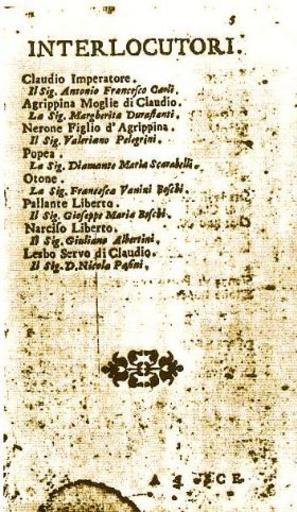 5
INTERLOCUTORI.
Claudio Imperatore.
Il Sig. Antonio Francesco Carli.
Agrippina Moglie di Claudio.
La Sig. Margherita Durastanti.
Nerone Figlio d'Agrippina.
Il Sig. Valeriano Pelegrini.
Popea.
La Sig. Diamante Maria Scarabelli.
Otone.
La Sig. Francesca Vanini Boschi.
Pallante Liberto.
Il Sig. Gioseppe Maria Boschi.
Narciso Liberto.
Il Sig. Giuliano Albertini.
Lesbo Servo di Claudio.
Il Sig. D. Nicola Pasini.
A